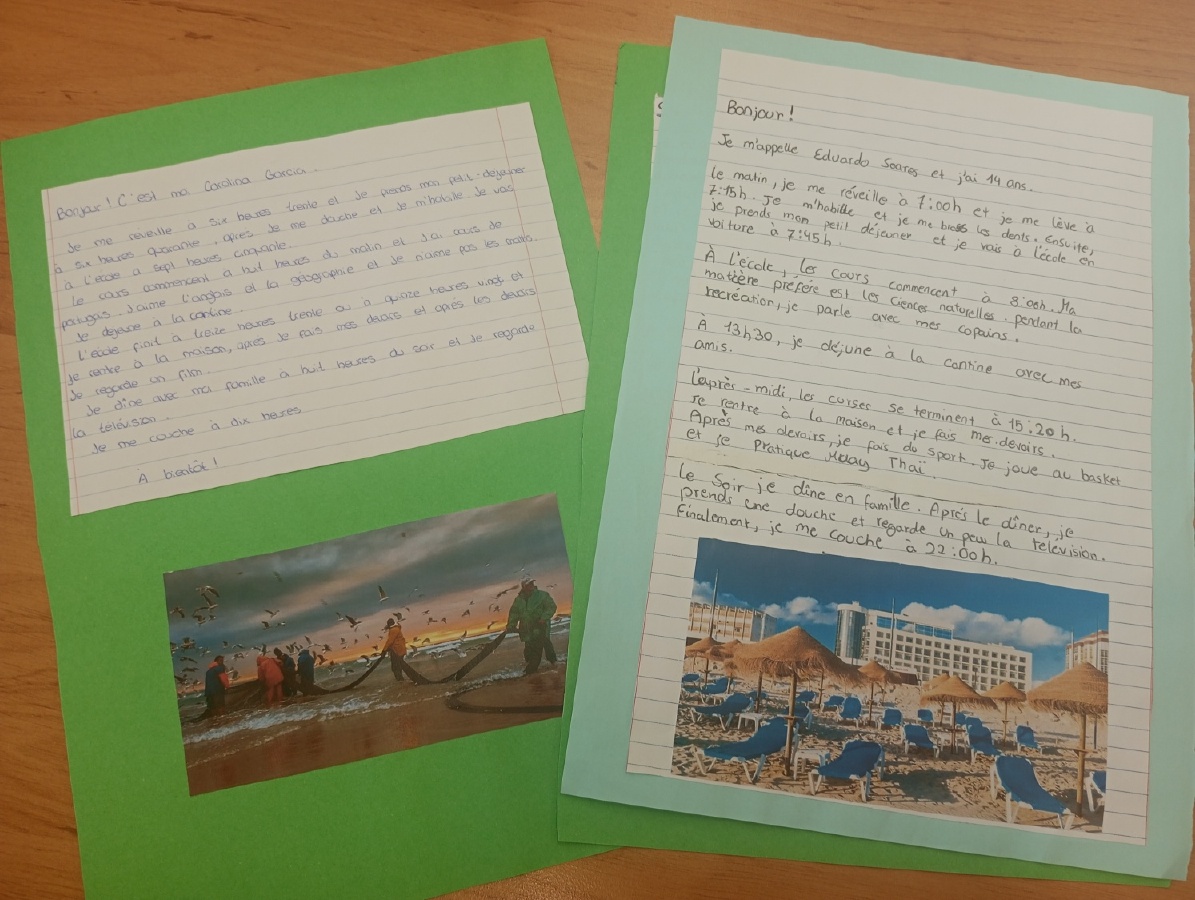 Bonjour! C'est ma Carolina Garcia.
Je me réveille à six heures trente et je prends mon petit-dejeuner
à six heures quarante, après je me douche et je m'habille. Je vas
à l'école à sept heures cinquante.
Le cours commencent à huit heures du matin et j'ai cours de
portugais. J'aime l'anglais et la géographie et je n'aime pas les maths.
Je dejeune à la cantine.
L'école finit à treize heures trente ou à quinze heures vingt et
je rentre à la maison, après je fais mes devoirs et après les devoirs
je regarde un film.
Je dîne avec ma famille à huit heures du soir et je regarde
la télévision.
Je me couche à dix heures
À bientôt!
Bonjour!
Je m'appelle Eduardo Soares et j'ai 14 ans.
Le matin, je me réveille à 7:00h et je me lève à
7:15h. Je m'habille et je me les dents. Ensuite,
je prends mon petit déjeuner et je vais à l'école en
voiture à 7:45h.
À l'école, les cours commencent à 8:00h. Ma
matière préféré est les Ciences naturelles. pendant la
recréation, je parle avec mes copains.
À 13h30, je déjune à la cantine avec mes
amis.
L'après-midi, les curses se terminent à 15:20h.
je rentre à la maison et je fais mes devoirs.
Après mes devoirs, je fais du sport. Je joue au basket
et je Pratique Muay Thaï.
Le Soir je dîne en famille. Après le dîner, je
prends une douche et regarde un peu la télévision.
Finalement, je me couche à 22:00h.